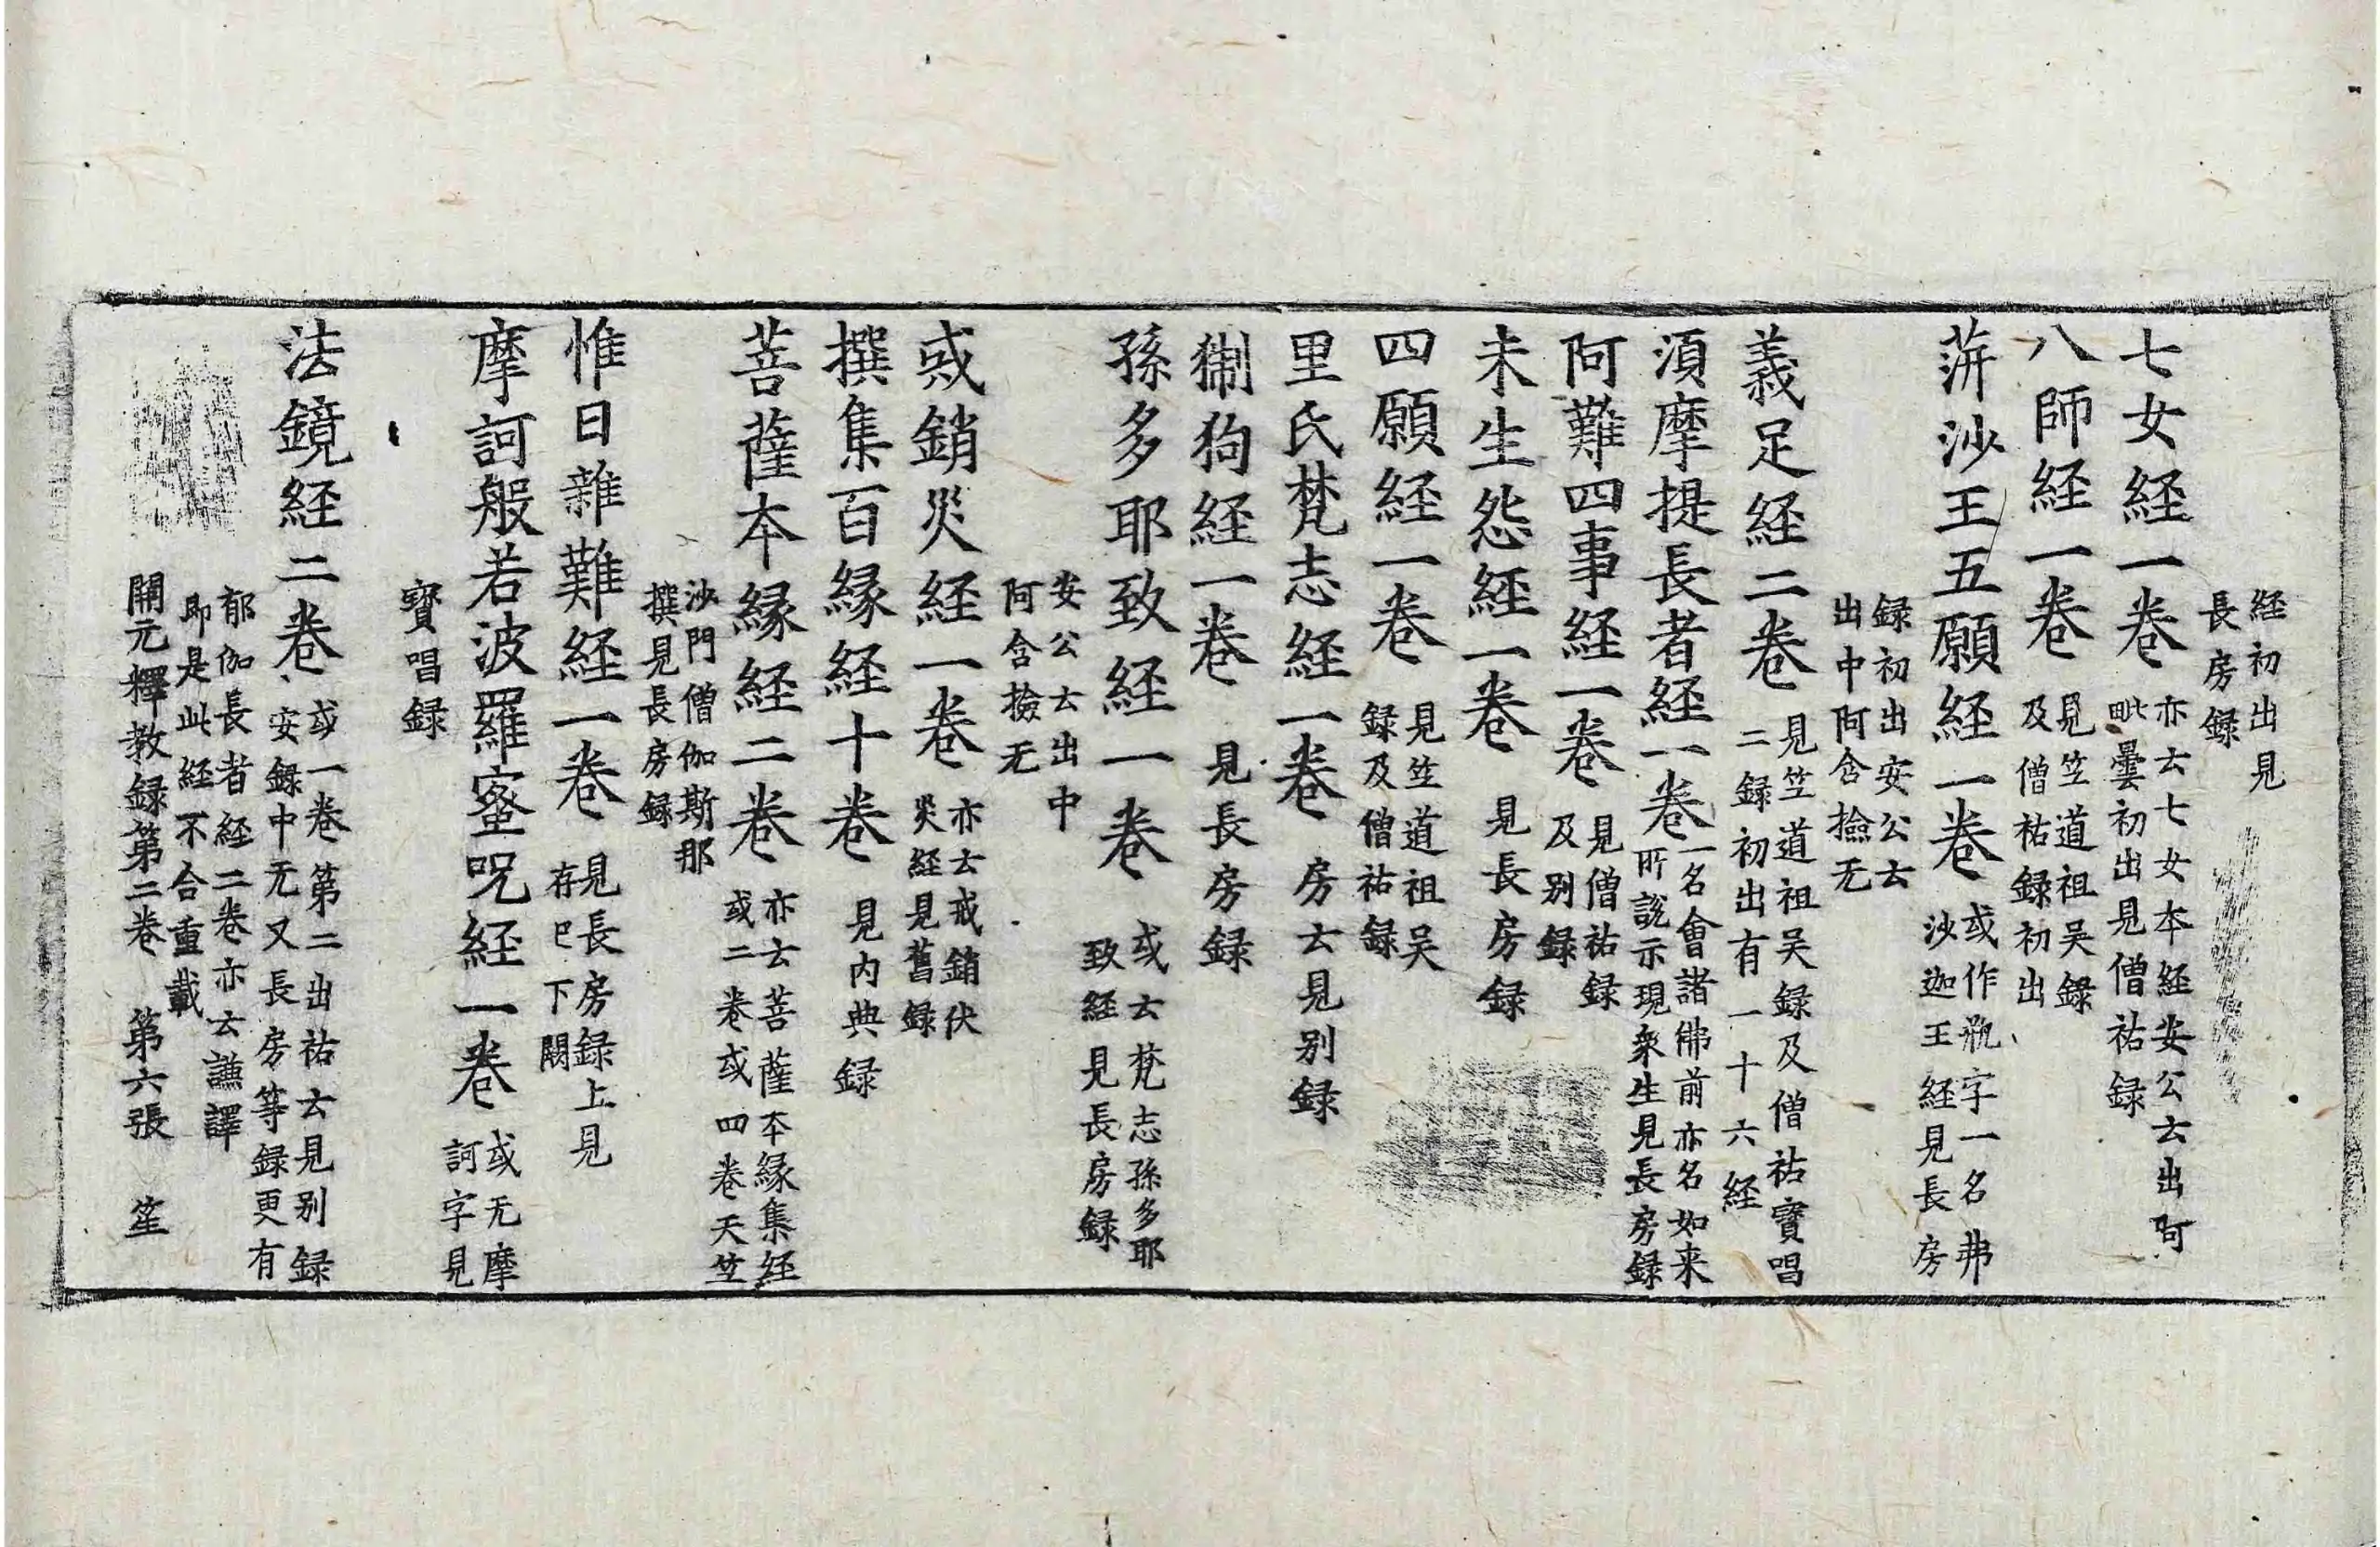 経初出見
長房録
七女経一巻亦云七女本経安公云出阿
毗曇初出見僧祐録
八師経一巻見笁道祖吴録
及僧祐録初出
蓱沙王五願経一巻或作瓶字一名弗
沙迦王経見長房
録初出安公云
出中阿含撿无
義足経二巻見笁道祖吴録及僧祐寳唱
二録初出有一十六経
湏摩提長者経一巻一名會諸佛前亦名如来
所說示現衆生見長房録
阿難四事経一巻見僧祐録
及别録
未生怨経一巻見長房録
四願経一巻見笁道祖吴
録及僧祐録
里氏梵志経一巻房云見别録
猘狗経一巻見長房録
孫多耶致経一巻或云梵志孫多耶
致経見長房録
安公云出中
阿含撿无
戒銷災経一巻亦云戒銷伏
災経見舊録
撰集百縁経十巻見内典録
菩薩本縁経二巻亦云菩薩本縁集経
或二巻或四巻天笁
沙門僧伽斯那
撰見長房録
惟日雜難経一巻見長房録上見
存巳下闕
摩訶般若波羅蜜呪経一巻或无摩
訶字見
寳唱録
法鏡経二巻或一巻第二出祐云見别録
安録中无又長房等録更有
郁伽長者経二巻亦云謙譯
即是此経不合重載
開元釋教録第二巻　第六張　笙